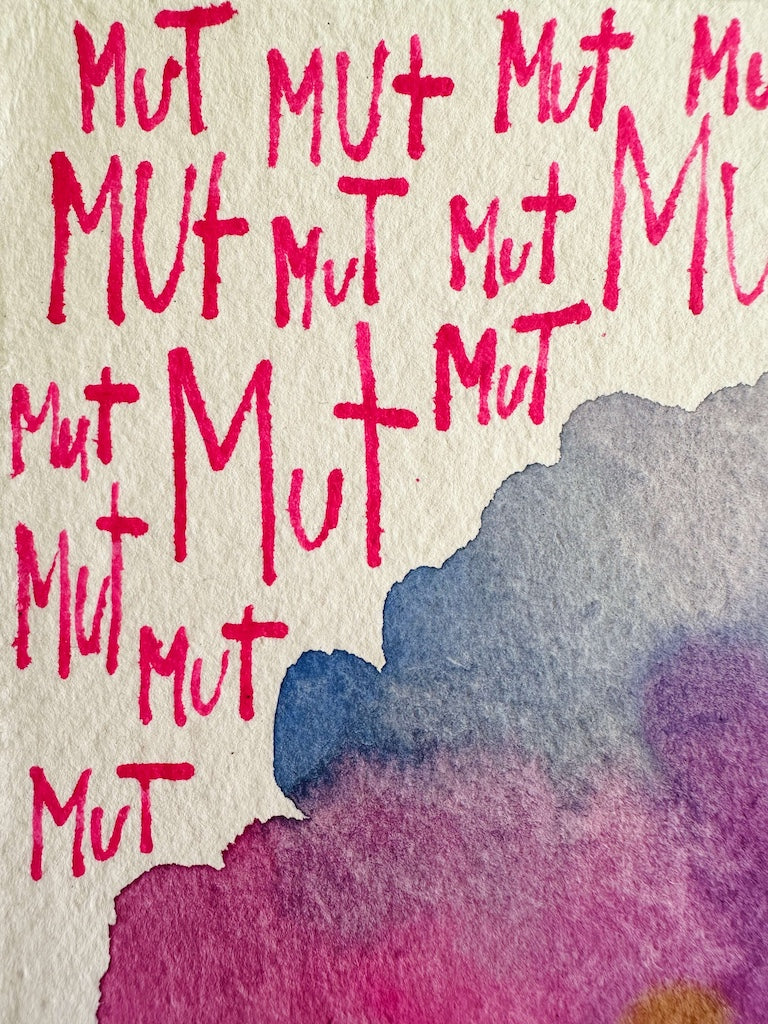 MuT MUt Mut Mu
MUt MuT Mut Mu
Mut Mut MuT
Mut
MuT
MuT